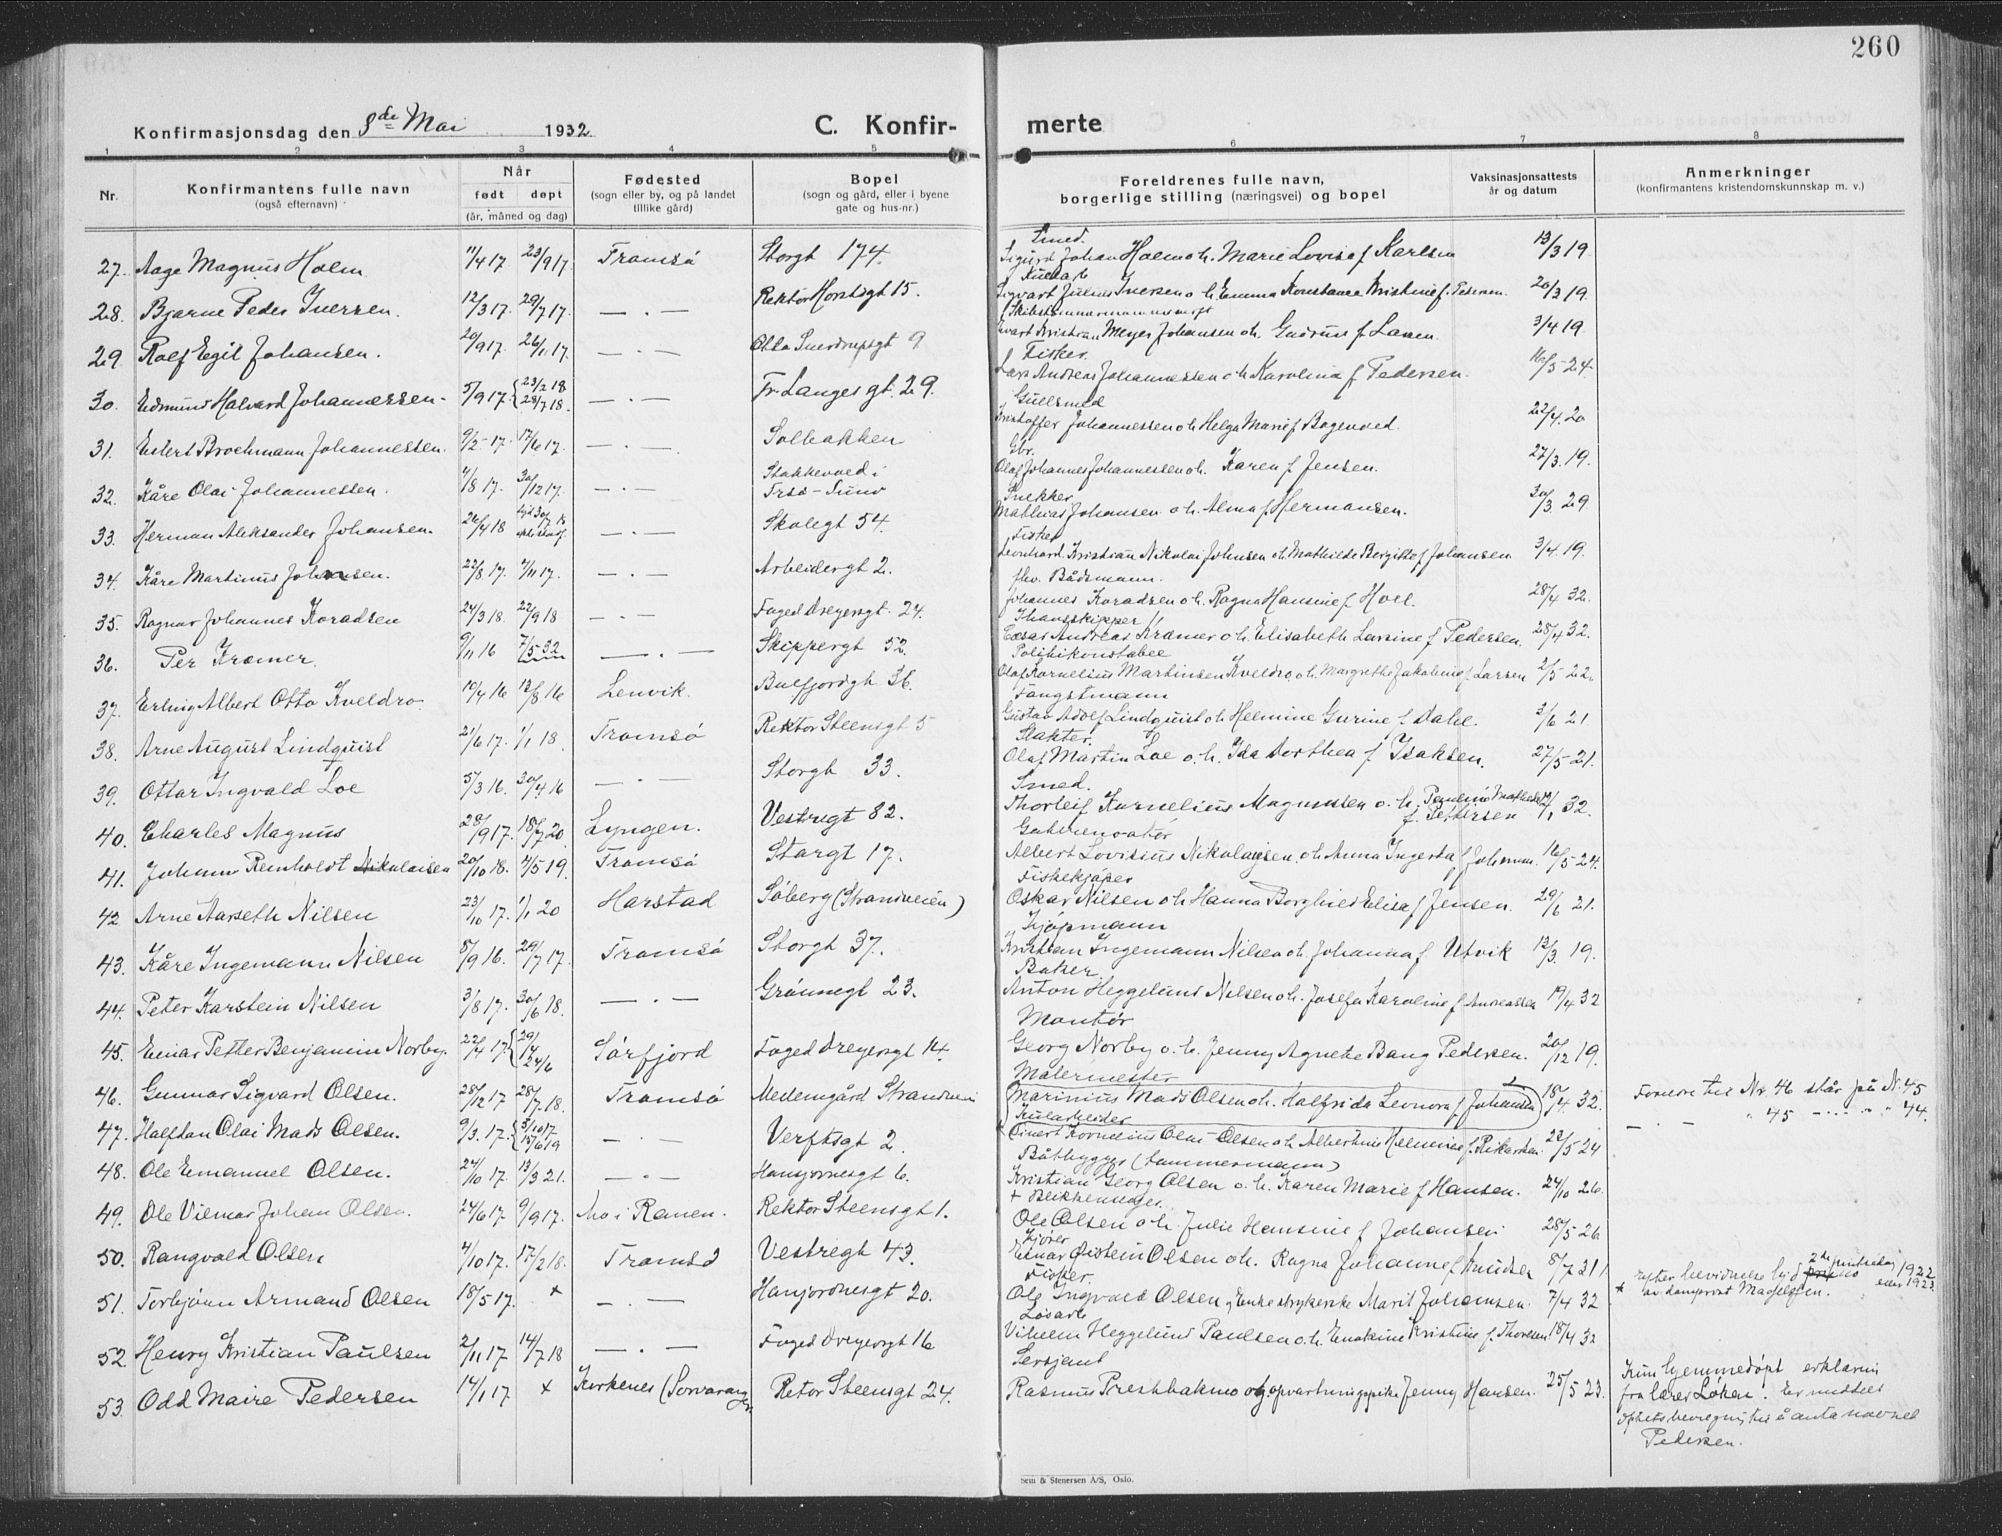 260
Konfirmasjonsdag den 8de Mai 1932
C. Konfir-
merte
1 2 3 4 5 6 7 8
Nr.
Konfirmantens fulle navn
(også efternavn)
Når
født døpt
(år, måned og dag)
Fødested
(sogn eller by, og på landet
tillike gård)
Bopel
(sogn og gård, eller i byene
gate og hus-nr.)
Foreldrenes fulle navn,
borgerlige stilling (næringsvei) og bopel
Vaksinasjonsattests
år og datum
Anmerkninger
(konfirmantens kristendomskunnskap m. v.)
27. Aage Magnus Holm 11/4 17. 23/9 17 Tromsø Storgt 174. Smed. Sigurd Johan Holm o.h. Marie Lovise f Karlsen 13/3 19.
28. Bjarne Peder Iversen. 12/3 17. 29/7 17. — . — Rektor Horstsgt 15. Sigvart Julius Iversen o.h. Emma Konstance Kristine f. Pedersen. 20/3 19.
29. Rolf Egil Johansen. 20/9 17. 26/11 17. — . — Otto Sverdrupsgt 9 Evart Kristian Meyer Johansen o.h. Gudrun f. 3/4 19.
30. Edmund Halvard Johannessen. 5/9 17. 23/2 18. 28/7 18. — . — Fr. Langesgt. 29. Fisker. Lars Andreas Johannessen o.h. Karolina f Pedersen. 16/5 24.
31. Eilert Brochmann Johannessen. 9/2 17. 17/6 17. — . — Solbakken Gullsmed Kristoffer Johannessen o.h. Helga Marie f Bogenvold. 22/4. 20
32. Kåre Olai Johannessen. 4/8 17. 30/12 17. — . — Stakkevold i Trsø-Sund Gbr. Olaf Johannes Johannessen o.h. Karen f Jensen. 27/3. 19.
33. Herman Aleksander Johansen. 26/4 18 — . — Skolegt 54. Snekker Mathias Johansen o.h. Alma f Hermansen. 30/3. 29
34. Kåre Martinus Johansen. 22/8 17. 4/11 17. — . — Arbeidergt 2. Fisker Leonhard Kristian Nikolai Johnsen o.h. Mathilde Bergitte f Johansen 3/4. 19.
35. Ragnar Johannes Koradsen 24/3 18. 22/9 18 — . — Foged Dreyersgt. 24. fhv. Bådsmann. Johannes Koradsen o.h. Ragna Hansine f. Hoel. 28/4 32.
36. Per Kræmer. 9/11 16 7/5 32 — . — Skippergt 52. Ishavsskipper Cæsar Andreas Kræmer o.h. Elisabeth Larsine f Pedersen. 28/4 32.
37. Erling Albert Otto Kveldro. 10/4 16 13/8 16 Lenvik. Balsfjordgt 36. Politikonstabel Olaf Kornelius Martinsen Kveldro. o.h. Margrethe Jakobine f Larsen 2/5 22.
38. Arne August Lindquist 21/6 17. 1/1 18. Tromsø Rektor Steensgt 5 Fangstmann Gustav Adolf Lindquist o.h. Helmine Gurine f. Dahl. 3/6 21
39. Ottar Ingvald Loe 5/3 16. 30/4 16 — . — Storgt 33. Slakter. Olaf Martin Loe o.h. Ida Dorthea f Isaksen. 27/5 21.
40. Charles Magnus 28/9 17. 18/7 20 Lyngen. Vestregt 82. Smed. Thorleif Kornelius Magnussen o.h. Pauline Mathilde f. Pettersen 12/1 32.
41. Johan Reinholdt Nikolaisen 20/10 18. 4/5 19. Tromsø Storgt 17. Albert Lovisius Nikolaisen o.h. Anna Ingerda f Johansen. 16/5 24.
42 Arne Aarseth Nilsen 23/10 17. 1/1 20 Harstad Søberg (Strandveien) Fiskekjøper Oskar Nilsen o.h. Hanna Borghild Elisa f Jensen. 29/6 21.
43. Kåre Ingemann Nilsen 8/9 16. 29/7 17. Tromsø Storgt 37. Kjøpmann Kristian Ingemann Nilsen o.h. Johanna f Utvik 12/3. 19.
44. Peter Karstein Nilsen 3/8 17. 30/6 18. — . — Grønnegt 23. Baker. Anton Heggelund Nilsen o.h. Josefa Karoline f. Andreassen 19/4 32
45. Einar Petter Benjamin Norby. 22/4 17 24/6 Sørfjord Foged Dreyersgt 14. Montør Georg Norby o.h. Jenny Agnete Bang Pedersen. 20/12 19.
46. Gunnar Sigvard Olsen. 28/12 17 28/7. 18. Tromsø Medemgård Strandveien Malermester Marinius Mads Olsen o.h. Halfrida Leonora f Johansen 18/4 32. Forrere til Nr 46 står på N. 45
47. Halfdan Olai Mads Olsen. 9/3. 17. 5/10 17 15/6 19 — . — Verftsgt 2. Kularbeider Einert Kornelius Olai Olsen o.h. Albertine Helmine f. Rikardsen. 22/5 24 — . — " 45 - . . . " " 44.
48. Ole Emanuel Olsen. 24/10 17. 13/3 21. — . — Hansjordnesgt 6. Båtbygger (tømmermann) Kristian Georg Olsen o.h. Karen Marie f Hansen. 24/10 26.
49. Ole Vilmar Johan Olsen. 24/6 17 9/9 17. Mo i Ranen. Rektor Steensgt 1. + Blikkenslager. Ole Olsen o.h. Julie Hansine f Johansen 28/5 26
50. Rangvald Olsen 4/10 17. 17/2 18. Tromsø Vestregt 43. Kjører Einar Øistein Olsen o.h. Ragna Johanne f Knudsen 8/7 31
51. Torbjørn Armand Olsen 18/5 17. × — . — Hansjordnesgt 20. Fisker. Ole Ingvald Olsen, Enke strykerske Marit Johansen. 7/4 32 × Efter bevidnelse hjd. 2de pinsedag 1922 eller 1923 av domprost Madssen.
52. Henry Kristian Paulsen 2/11 17. 14/7 18 — . — Foged Dreyersgt 16 Løsarb Vilhelm Heggelund Paulsen o.h. Enokine Kristine f. Thoresen 18/4 32
53. Odd Maire Pedersen 14/1 17 × Kirkenes (Sørvaranger) Retor Steensgt 24. Sersjant Rasmus Prestbakmo og opvartningspike Jenny Hansen. 25/5 23. Kun hjemmedøpt erklæring fra lærer Løken. Er meddelt
Pedersen.
Sem & Stenersen A/S, Oslo.